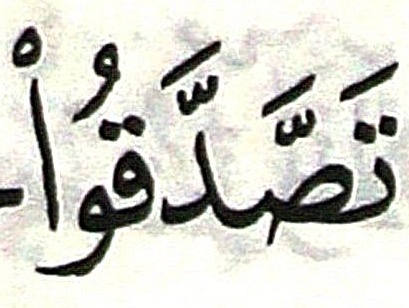 تَصَّدَّقُواْ